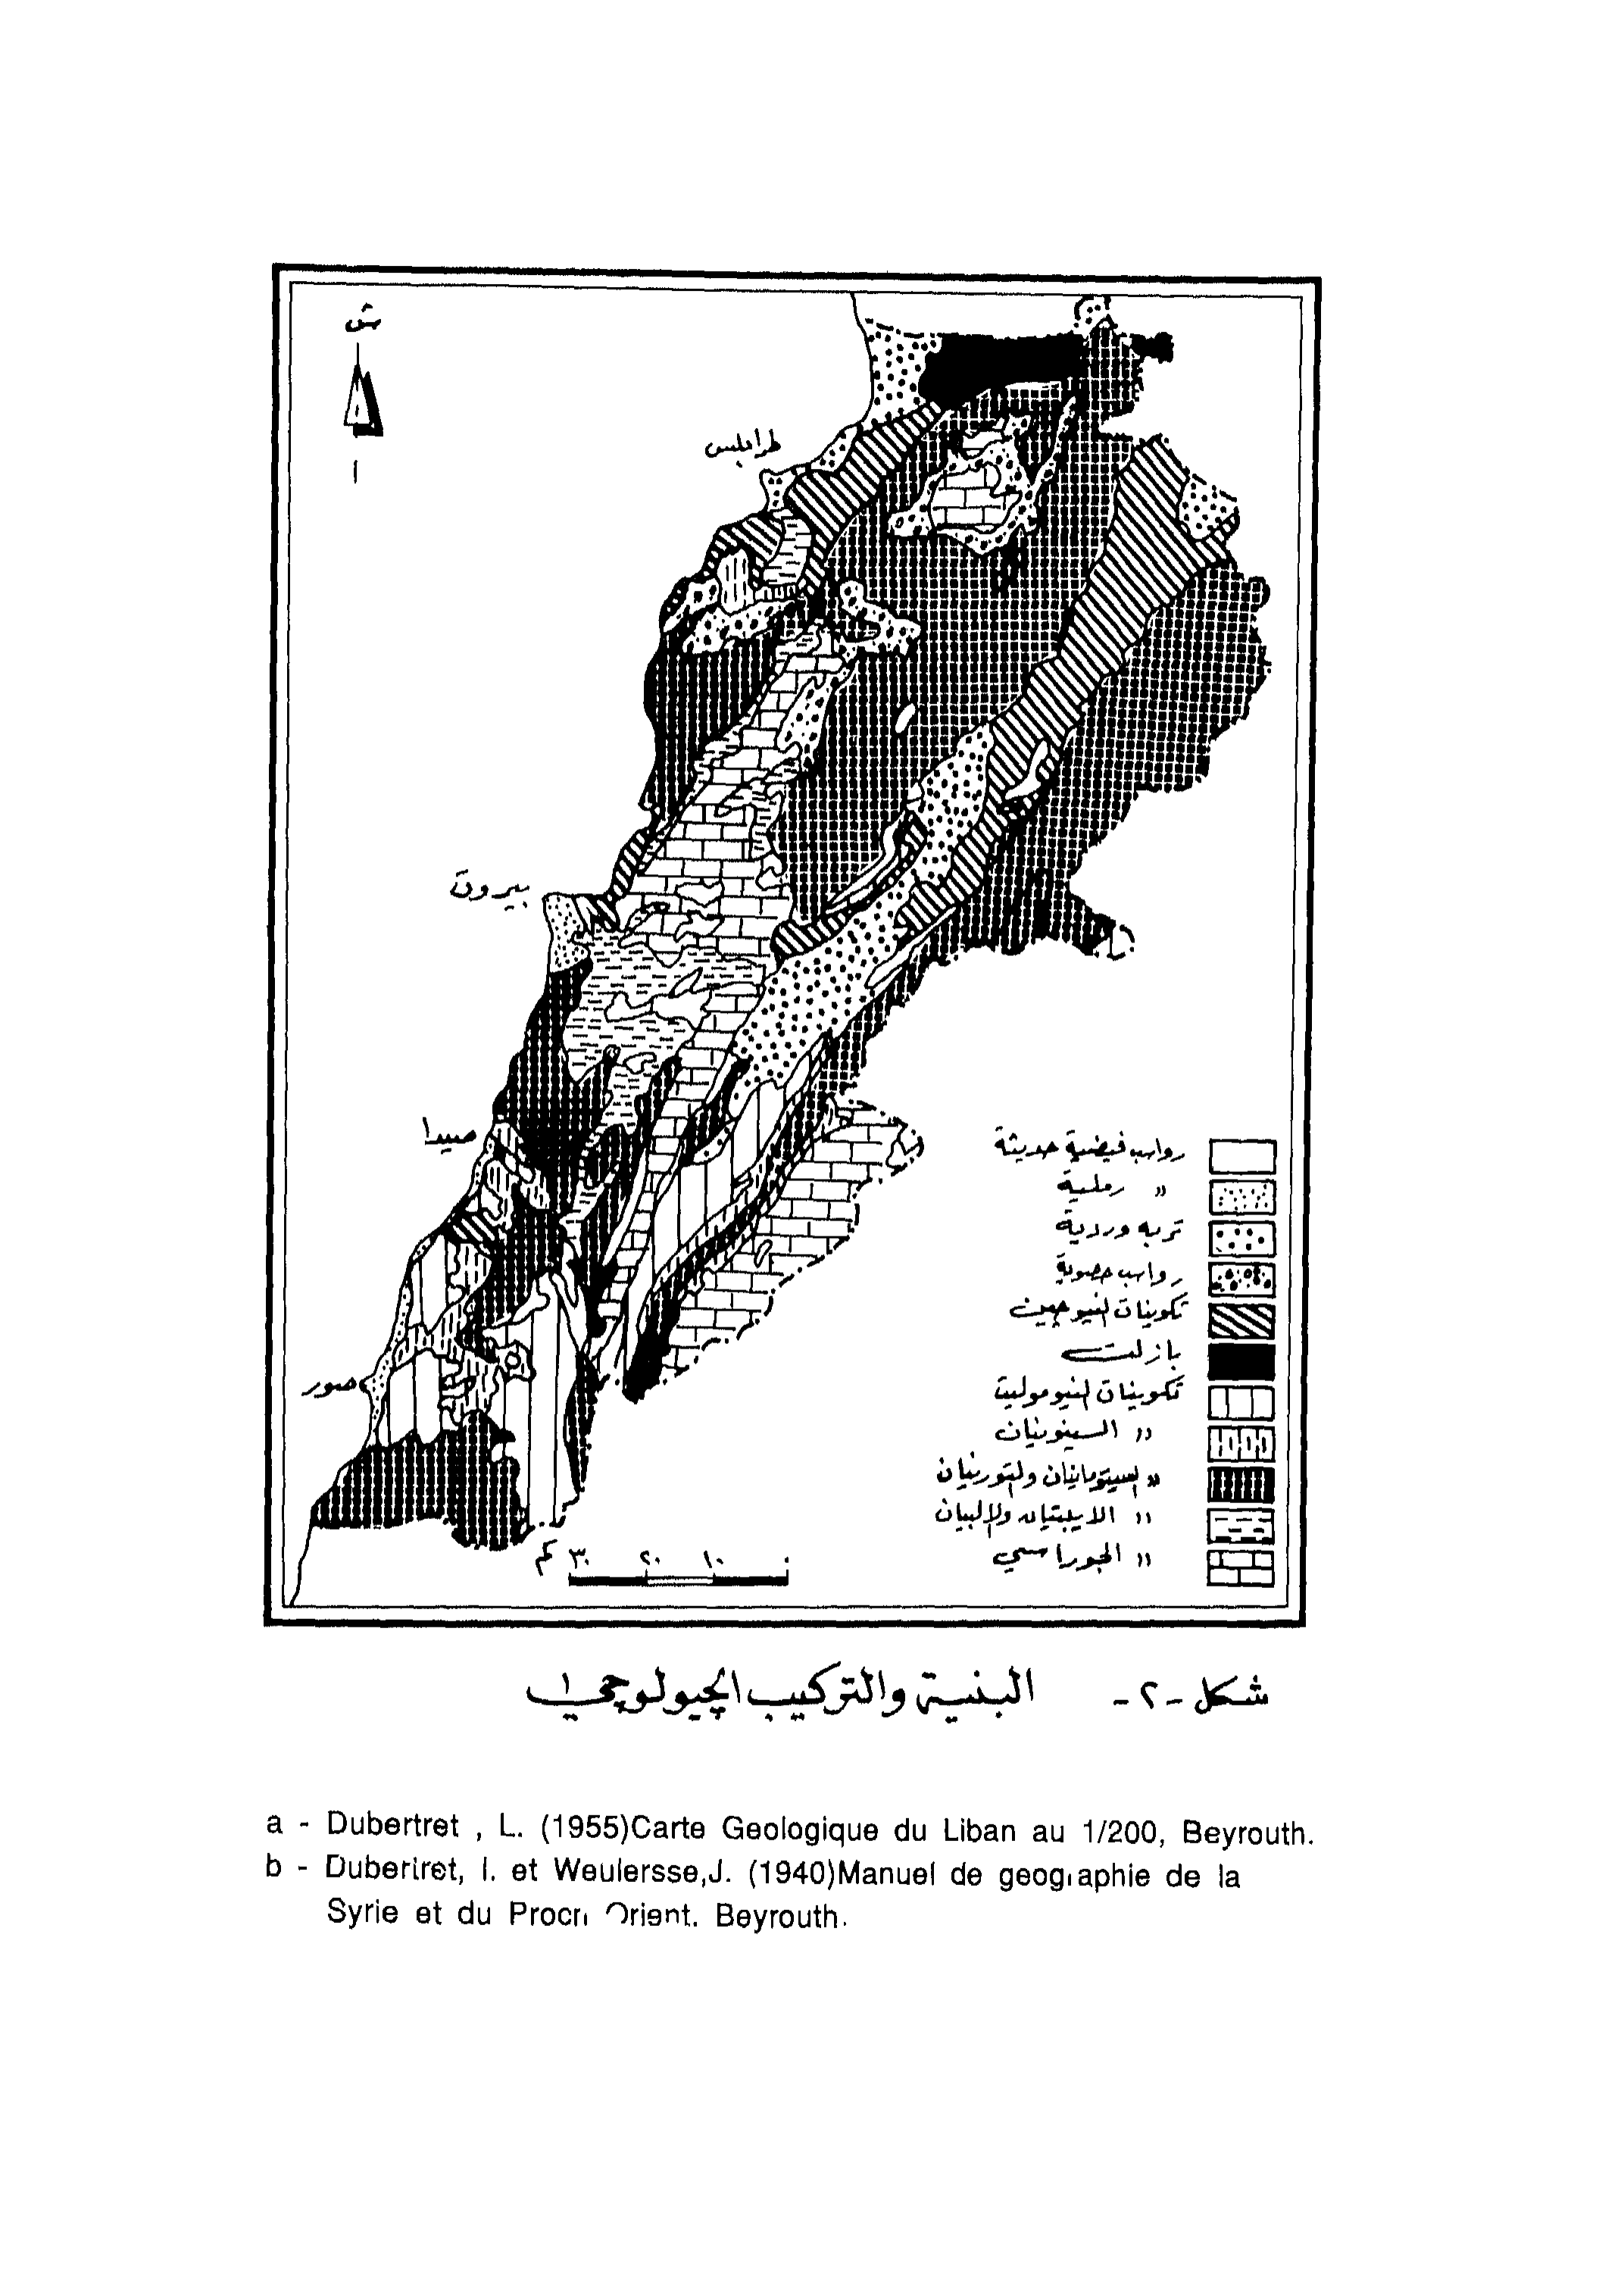 ش
طرابلس
بيروت
صيدا
صور
رواسب فيضية حديثة
" رملية
تربه وردية
رواسب حصوية
تكوينات النيوجين
بازلت
تكوينات النيوموليت
" السينونيان
" السينومانيان والتورنيان
" الابتيان والالبيان
" الجوراسي
كم ٣٠ ٢٠ ١٠ ٠
شكل -٢- البنية والتركيب الجيولوجي
a - Dubertret , L. (1955)Carte Geologique du Liban au 1/200, Beyrouth.
b - Dubertret, l. et Weulersse,J. (1940)Manuel de geographie de la
Syrie et du Proch Orient. Beyrouth.